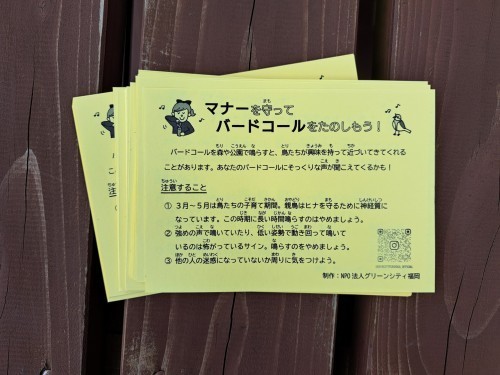 マナーを守って
バードコールをたのしもう！
バードコールを森や公園で鳴らすと、鳥たちが興味を持って近づいてきてくれる
ことがあります。あなたのバードコールにそっくりな声が聞こえてくるかも！
注意すること
① 3月〜5月は鳥たちの子育て期間。親鳥はヒナを守るために神経質に
なっています。この時期に長い時間鳴らすのはやめましょう。
② 強めの声で鳴いていたり、低い姿勢で動き回って鳴いて
いるのは怖がっているサイン。鳴らすのをやめましょう。
③ 他の人の迷惑になっていないか周りに気をつけよう。
制作：NPO法人グリーンシティ福岡